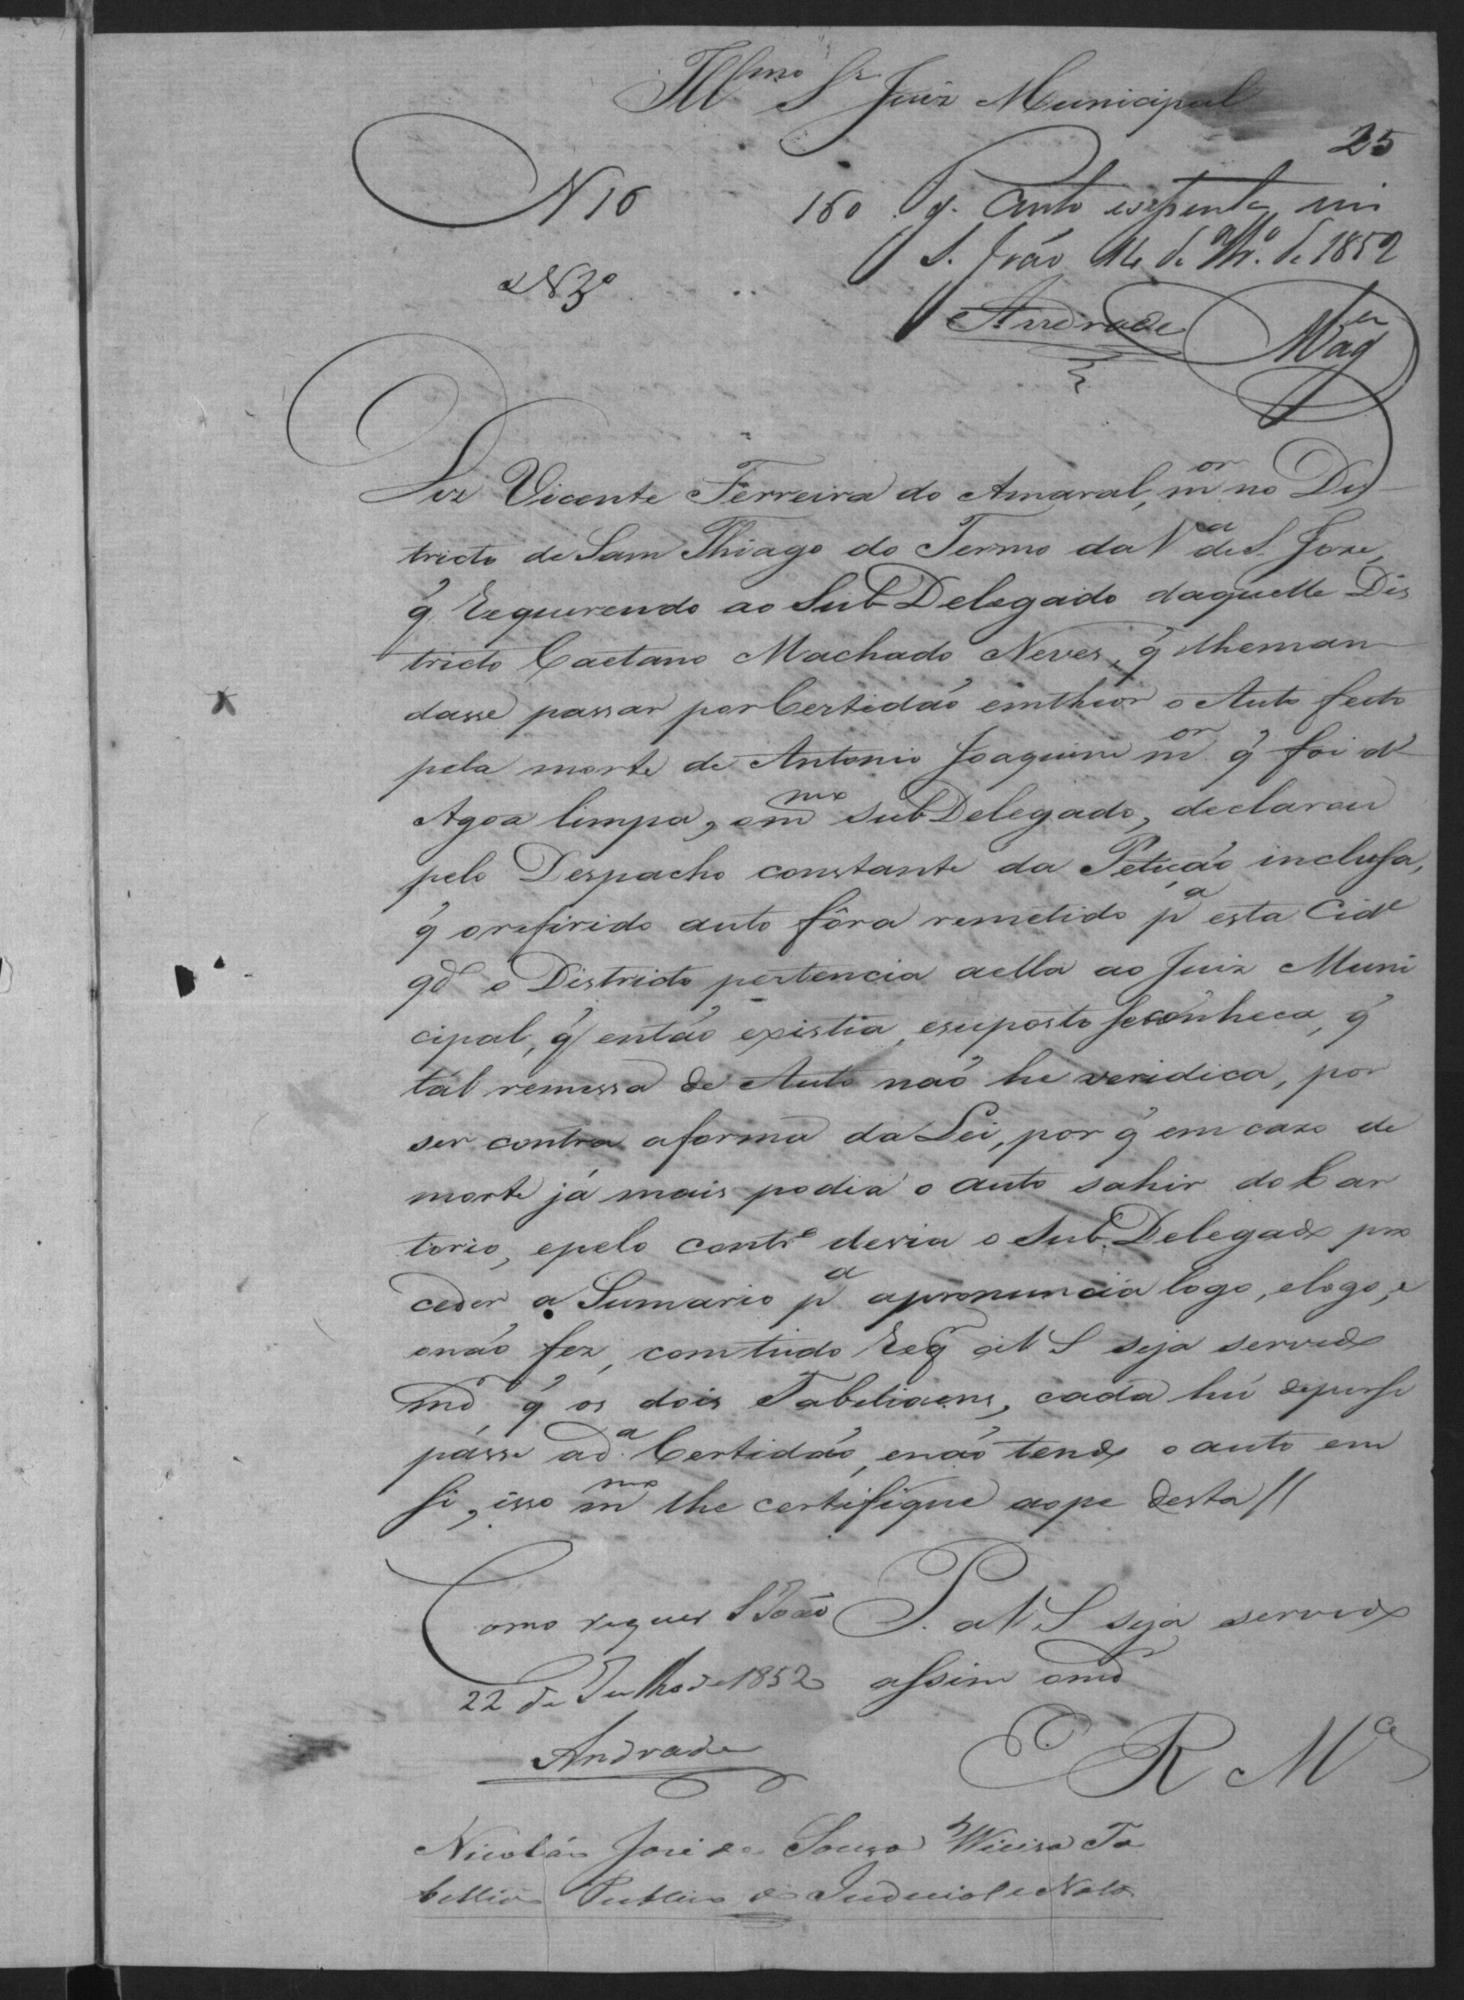 Illmo Sr Juiz Municipal
25
N 16
160 Pg. Cento e secenta reis
S. João 14 de 7bro. de 1852
N 3º
Andrade Mager
Diz Vicente Ferreira do Amaral, mor no Dis-
tricto de Sam Thiago do Termo da Va de S. Joze,
q̃ Requerendo ao Sub Delegado daquelle Dis
tricto Caetano Machado Neves, q̃ lheman
dasse passar por Certidaõ emtheor o Auto feito
pela morte de Antonio Joaquim mor q̃ foi d'
Agoa limpa, ommo subDelegado, declarou
pelo Despacho constante da Petiçaõ inclusa,
q̃ orefirido auto fôra remetido pa esta Cide
qdo o Districto pertencia aella ao Juiz Muni
cipal, q̃ entaõ existia, esuposto seconheca, q̃
tal remessa de Auto naõ he veridica, por
ser contra aforma da Lei, por q̃ em cazo de
morte já mais podia o auto sahir doCar
torio, epelo contro devia o Sub Delegado pro
ceder a Sumario pa apronuncia logo, elogo, e
onaõ fez, comtudo Reqr aV S seja servido
mdr q̃ os dois Tabeliaens, cada hũ depersi
pásse ada. Certidaõ, enaõ tendo o auto em
si, isso mmo lhe certifique aope desta //
Como requer S João
22 de Julho de 1852
Andrade
P. aV S seja servido
assim omdr
E R Mce
Nicoláu José de Souza Vieira Ta
bellião Publico do Judicial e Notas